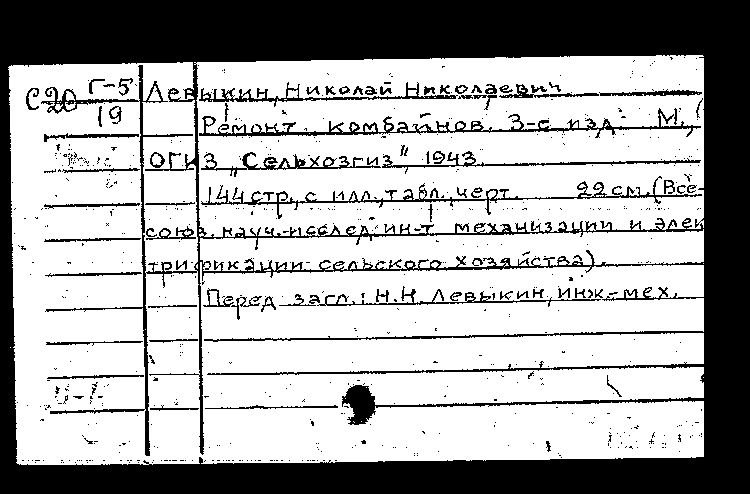 С-20 Г-5
19
Левыкин, Николай Николаевич.
Ремонт комбайнов. 3-е изд. М.,
ОГИЗ „Сельхозгиз", 1943.
144 стр., с илл., табл., черт. 22 см. (Все-
союз. науч.-исслед. ин-т механизации и элек
трификации сельского хозяйства).
Перед загл.: Н.Н. Левыкин, инж.-мех.